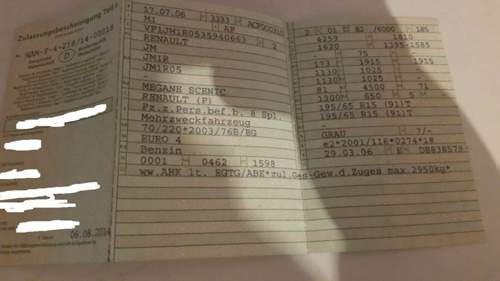 Zulassungsbescheinigung Teil I
Nr. HAM-S-4-218/14-00018
D
17.07.06 3333 ACF
M1 AF
VF1JM1R0535940663 2
RENAULT
JM
JM1R
JM1R05
-
MEGANE SCENIC
RENAULT (F)
Fz.z.Pers.bef.b. 8 Spl.
Mehrzweckfahrzeug
70/220*2003/76B/EG
EURO 4
Benzin
0001 0462 1598
ww.AHK lt. EGTG/ABE*zul.Ges-Gew.d.Zuges max.2950kg*
2 01 82 /6000 185
4259 1810
1620 1395-1585
- 75 -
173 1915 1915
1130 1025 -
1130 1025 -
81 4500 71
1300 650 5
195/65 R15 (91)T
195/65 R15 (91)T
-
GRAU 7/-
e2*2001/116*0274*18
29.03.06 E DE838579
06.08.2014